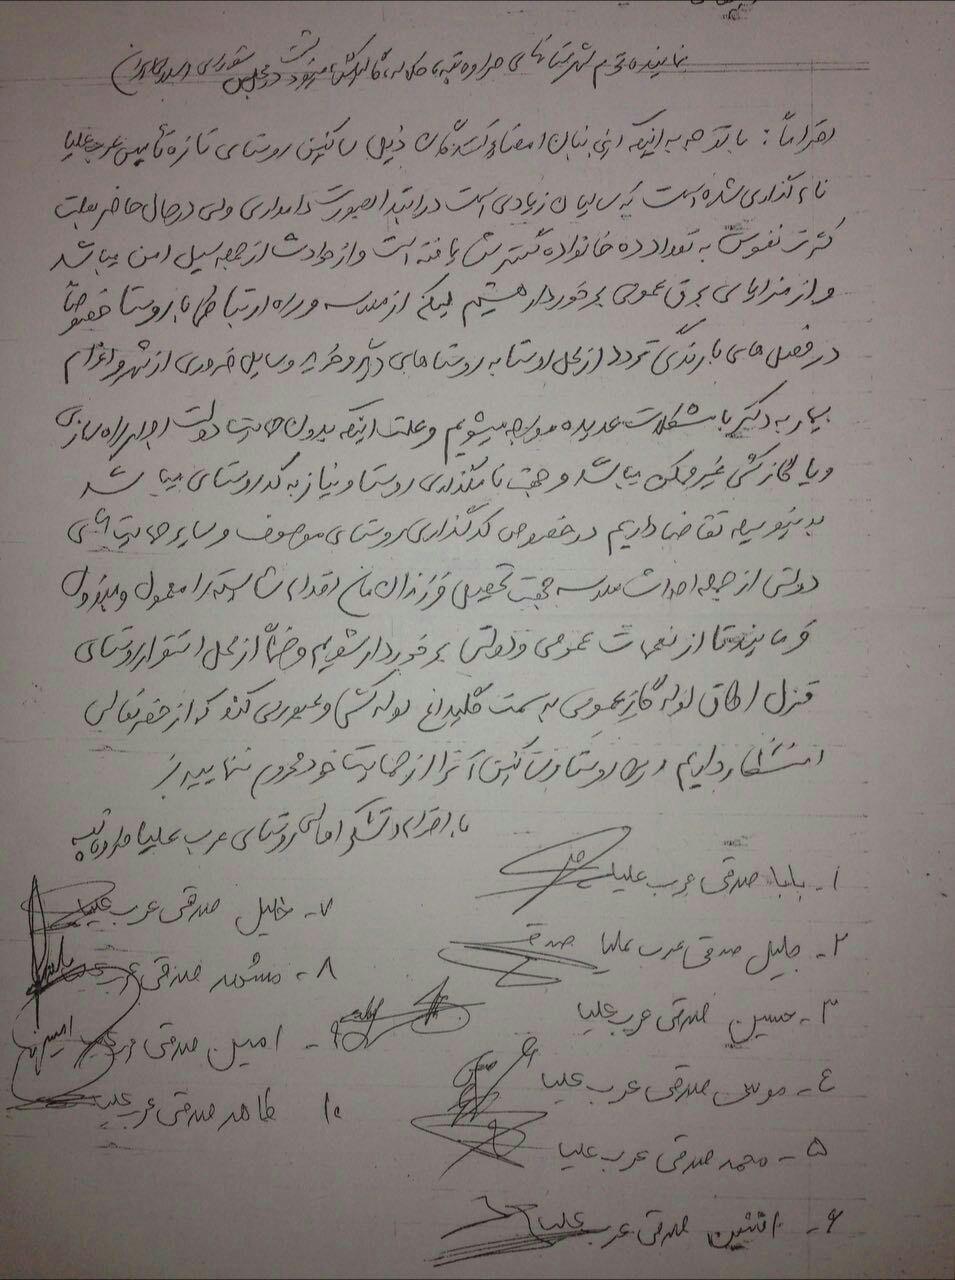 نماینده محترم شهرستانهای مراوه تپه و کلاله، گالیکش، مینودشت در مجلس شورای اسلامی
احتراماً: با توجه به اینکه اینجانبان امضاء کنندگان ذیل ساکنین روستای تازه تأسیس عرب علیا
نام گذاری شده است که سالیان زیادی است در ابتدا بصورت دامداری ولی در حال حاضر بعلت
کثرت نفوس به تعداد ده خانواده گسترش یافته است و از حوادث از جمله سیل امن میباشد
و از مزایای برق عمومی برخوردار هستیم لیکن از مدرسه و راه ارتباطی با روستا خصوصاً
در فصل های بارندگی تردد از محل روستا به روستاهای دیگر و خرید وسایل ضروری از شهر و اعزام
بیمار به دکتر با مشکلات عدیده مواجه میشویم و علت اینکه بدون حمایت دولت اجرا راه سازی
و یا گاز کشی غیر ممکن میباشد و جهت نامگذاری روستا و نیاز به کد روستای میباشد
بدینوسیله تقاضا داریم در خصوص کد گذاری روستای موصوف و سایر حمایتهای
دولتی از جمله احداث مدرسه جهت تحصیل فرزندان مان اقدام شایسته را معمول و مبذول
فرمایید تا از نعمات عمومی دولتی برخوردار شویم و ضمناً از محل استقرار روستای
قزل اطاق لوله گاز عمومی به سمت گلیداغ لوله کشی و عبور می کند که از حضرتعالی
انتظار داریم این روستا و ساکنین آنرا از حمایت خود محروم ننمایید
با احترام و تشکر اهالی روستای عرب علیا مراوه تپه
۱- بابا صدقی عرب علیا
۲- جلیل صدقی عرب علیا
۳- حسین صدقی عرب علیا
٤- موسی صدقی عرب علیا
۵- محمد صدقی عرب علیا
۶- افشین صدقی عرب علیا
۷- خلیل صدقی عرب علیا
۸- صدقی عرب
۹- امین صدقی عرب علیا
۱۰ طاهر صدقی عرب علیا